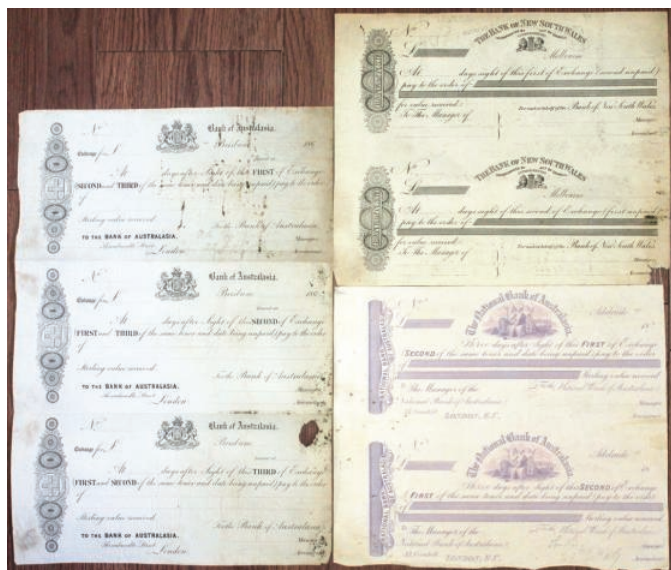 No
Bank of Australasia.
Brisbane 186
Exchange for £
At days after Sight of this FIRST of Exchange
SECOND and THIRD of the same tenor and date being unpaid) pay to the order
of
Sterling value received
For the Bank of Australasia,
TO THE BANK OF AUSTRALASIA.
Threadneedle Street,
London
Manager
Accountant
No
Bank of Australasia.
Brisbane 186
Exchange for £
At days after Sight of this SECOND of Exchange
FIRST and THIRD of the same tenor and date being unpaid) pay to the order
of
Sterling value received
For the Bank of Australasia,
TO THE BANK OF AUSTRALASIA.
Threadneedle Street,
London
Manager
Accountant
No
Bank of Australasia.
Brisbane
Exchange for £
At days after Sight of this THIRD of Exchange
FIRST and SECOND of the same tenor and date being unpaid) pay to the order
of
Sterling value received
For the Bank of Australasia,
TO THE BANK OF AUSTRALASIA.
Threadneedle Street,
London
Manager
Accountant
THE BANK OF NEW SOUTH WALES
No
£
Melbourne
At days sight of this first of Exchange (second unpaid)
pay to the order of
for value received:
To The Manager of
For and on behalf of the Bank of New South Wales,
Manager
Accountant
THE BANK OF NEW SOUTH WALES
No
£
Melbourne
At days sight of this second of Exchange (first unpaid)
pay to the order of
for value received:
To The Manager of
For and on behalf of the Bank of New South Wales,
Manager
Accountant
The National Bank of Australasia,
No
Adelaide 18
£
Three days after Sight of this FIRST of Exchange
SECOND of the same tenor and date being unpaid) pay to the order
of
Sterling value received
To The Manager of the
National Bank of Australasia
LONDON, E.C.
For the National Bank of Australasia
NATIONAL BANK OF AUSTRALASIA
Manager
Accountant
The National Bank of Australasia,
No
Adelaide 18
£
days after Sight of this SECOND of Exchange
FIRST of the same tenor and date being unpaid) pay to the order
of
Sterling value received
To The Manager of the
National Bank of Australasia
LONDON, E.C.
For the National Bank of Australasia
NATIONAL BANK OF AUSTRALASIA
Manager
Accountant